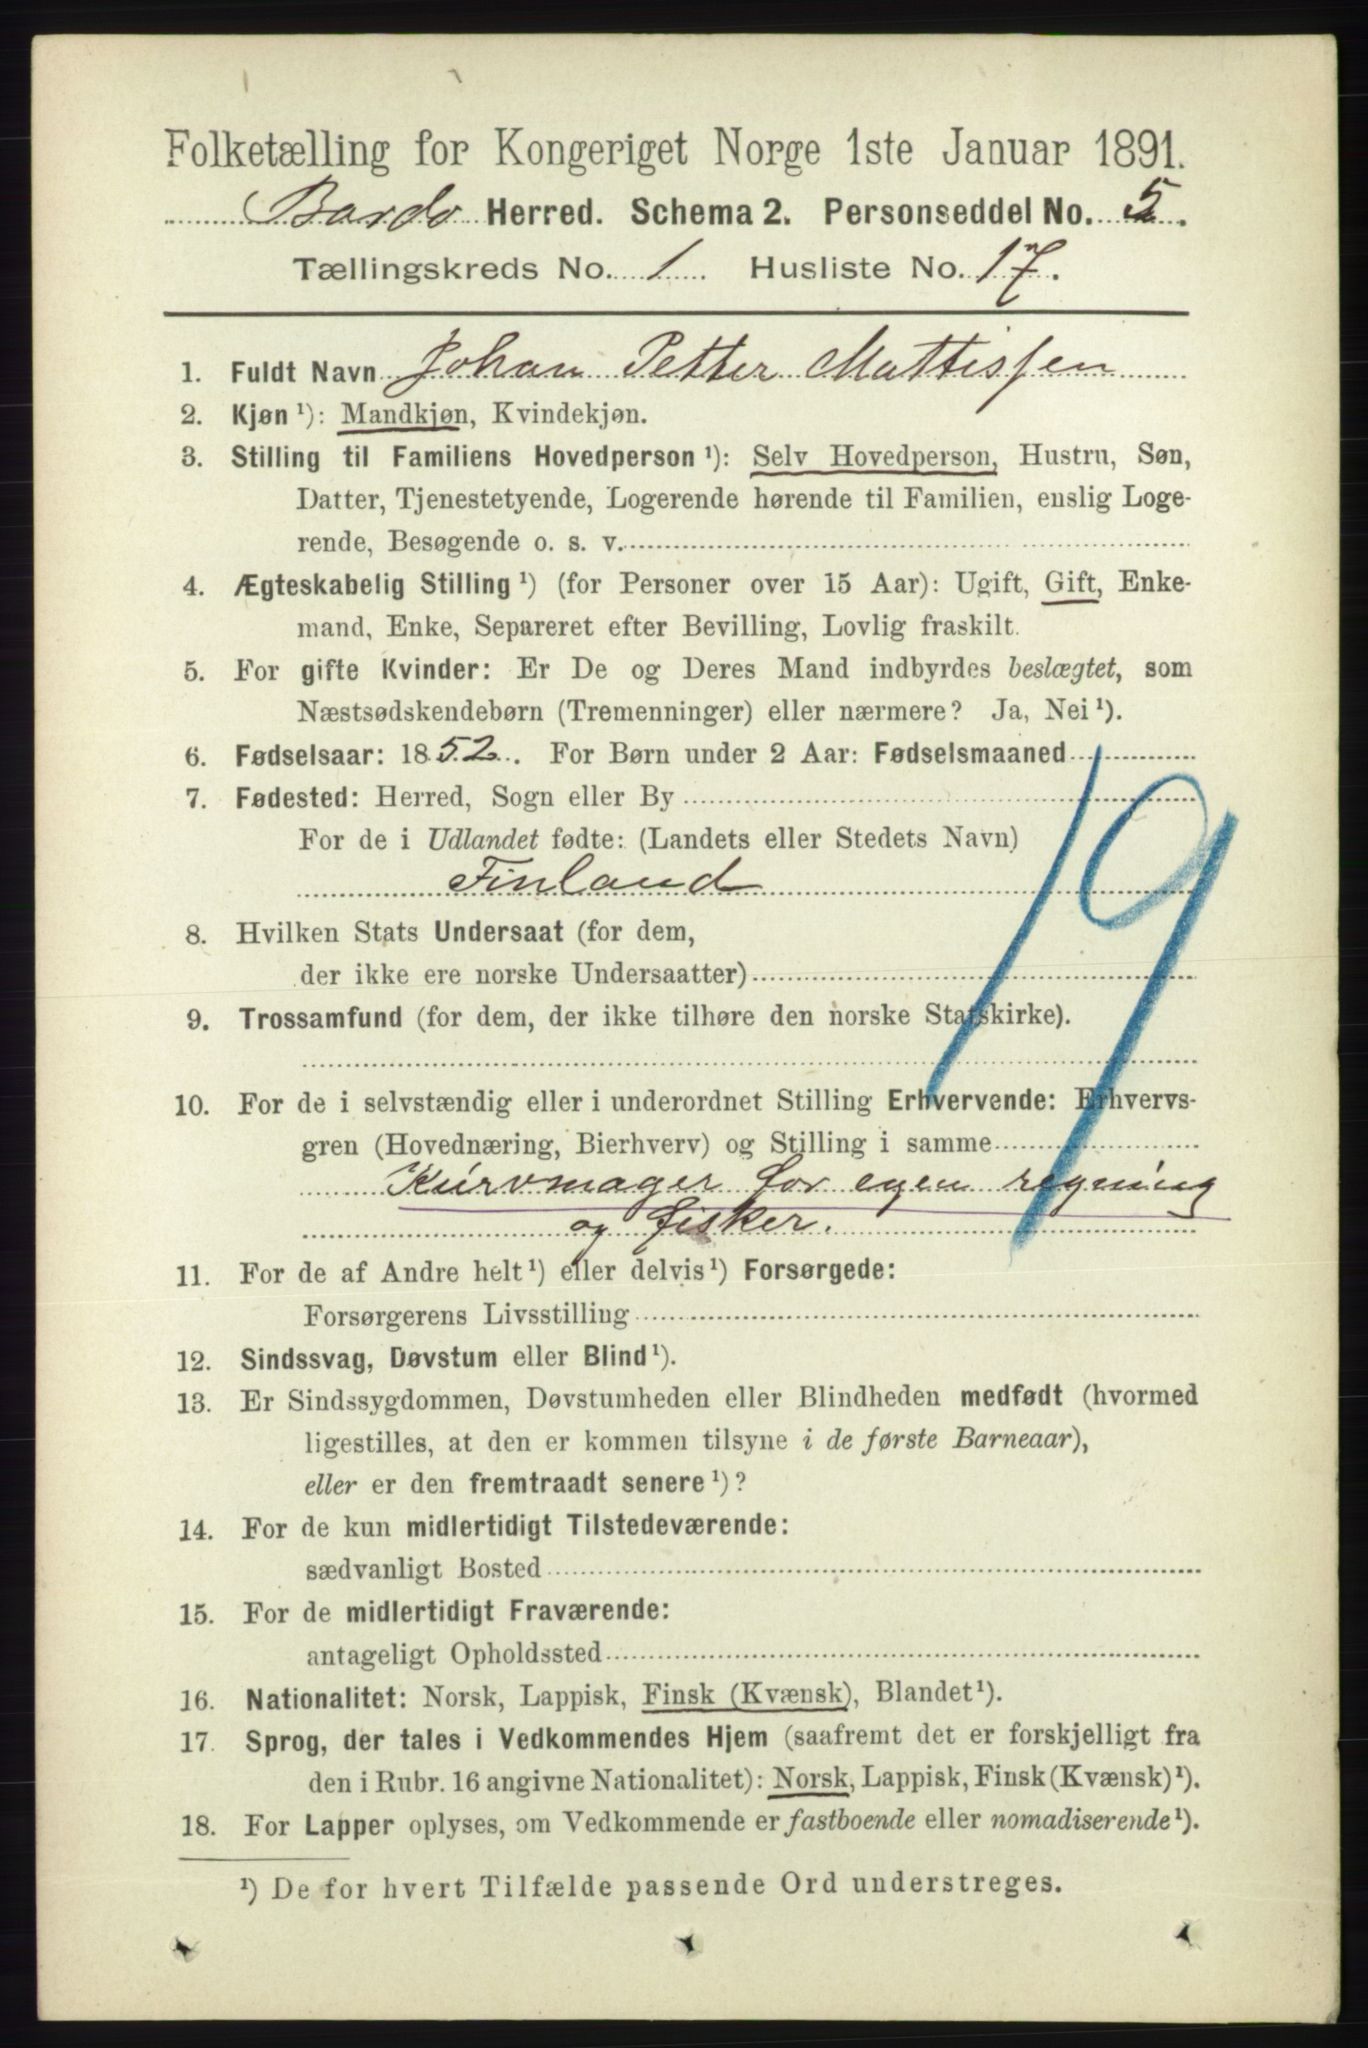 Folketælling for Kongeriget Norge 1ste Januar 1891.
Bardo Herred. Schema 2. Personseddel No. 5.
Tællingskreds No. 1 Husliste No. 17.
1. Fuldt Navn Johan Petter Mattissen
2. Kjøn ¹): Mandkjøn, Kvindekjøn.
3. Stilling til Familiens Hovedperson ¹): Selv Hovedperson, Hustru, Søn,
Datter, Tjenestetyende, Logerende hørende til Familien, enslig Loge-
rende, Besøgende o. s. v.
4. Ægteskabelig Stilling ¹) (for Personer over 15 Aar): Ugift, Gift, Enke-
mand, Enke, Separeret efter Bevilling, Lovlig fraskilt.
5. For gifte Kvinder: Er De og Deres Mand indbyrdes beslægtet, som
Næstsødskendebørn (Tremenninger) eller nærmere? Ja, Nei ¹).
6. Fødselsaar: 1852. For Børn under 2 Aar: Fødselsmaaned
7. Fødested: Herred, Sogn eller By
For de i Udlandet fødte: (Landets eller Stedets Navn)
Finland
19
8. Hvilken Stats Undersaat (for dem,
der ikke ere norske Undersaatter)
9. Trossamfund (for dem, der ikke tilhøre den norske Statskirke).
10. For de i selvstændig eller i underordnet Stilling Erhvervende: Erhvervs-
gren (Hovednæring, Bierhverv) og Stilling i samme
Kurvmager for egen regning
og fisker.
11. For de af Andre helt ¹) eller delvis ¹) Forsørgede:
Forsørgerens Livsstilling
12. Sindssvag, Døvstum eller Blind ¹).
13. Er Sindssygdommen, Døvstumheden eller Blindheden medfødt (hvormed
ligestilles, at den er kommen tilsyne i de første Barneaar),
eller er den fremtraadt senere ¹)?
14. For de kun midlertidigt Tilstedeværende:
sædvanligt Bosted
15. For de midlertidigt Fraværende:
antageligt Opholdssted
16. Nationalitet: Norsk, Lappisk, Finsk (Kvænsk), Blandet ¹).
17. Sprog, der tales i Vedkommendes Hjem (saafremt det er forskjelligt fra
den i Rubr. 16 angivne Nationalitet): Norsk, Lappisk, Finsk (Kvænsk) ¹).
18. For Lapper oplyses, om Vedkommende er fastboende eller nomadiserende ¹).
¹) De for hvert Tilfælde passende Ord understreges.